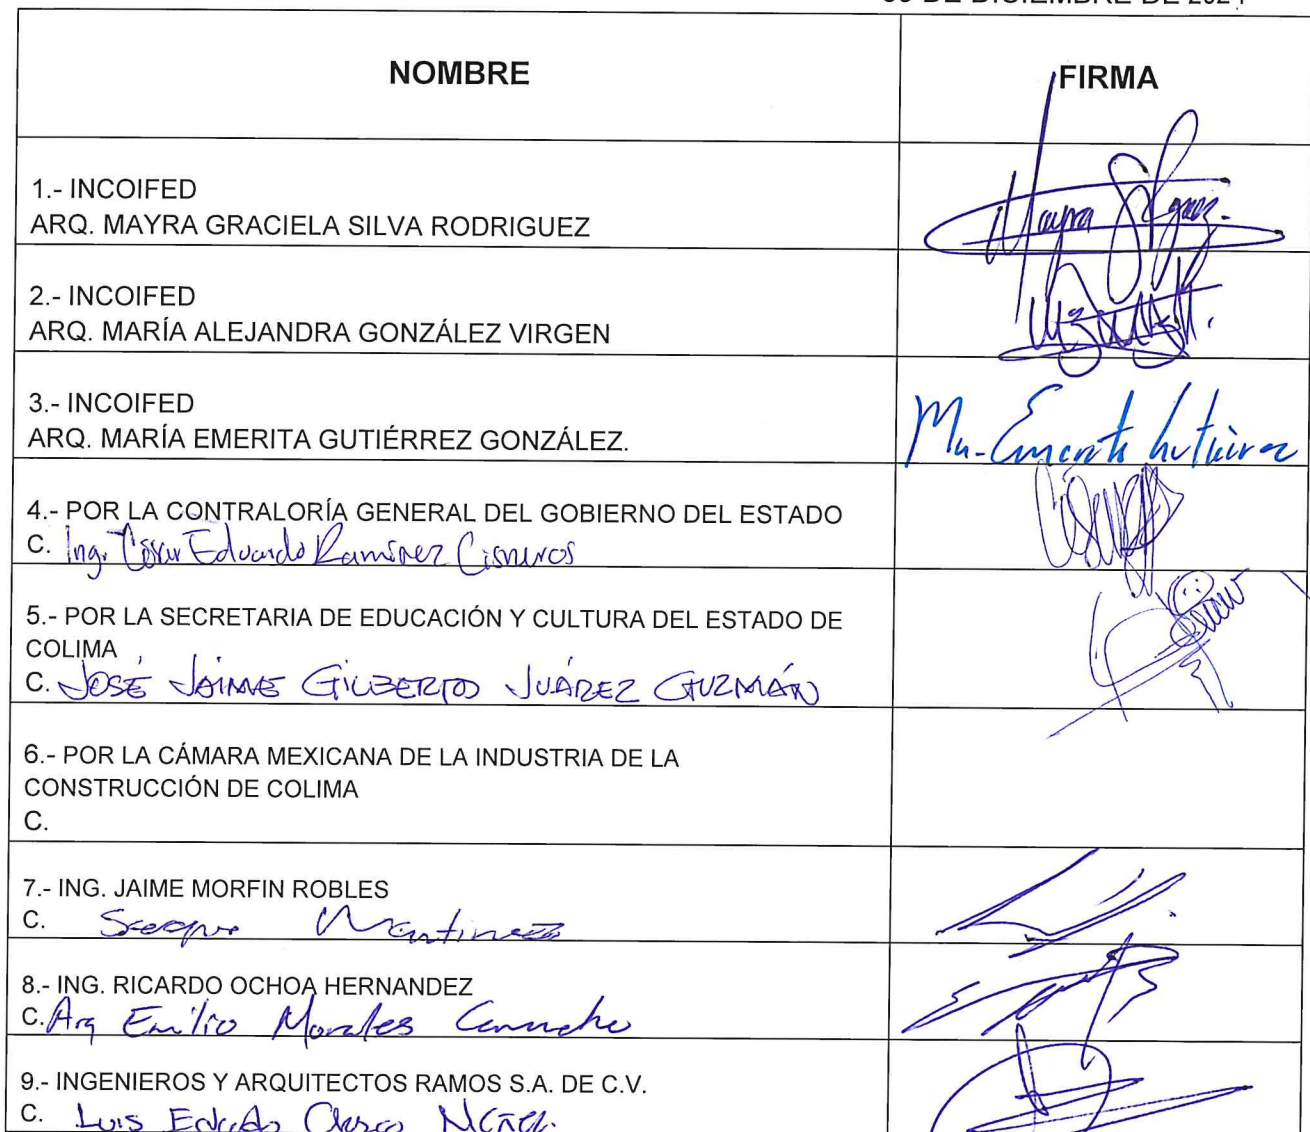 DE DICIEMBRE DE 2024
NOMBRE
FIRMA
1.- INCOIFED
ARQ. MAYRA GRACIELA SILVA RODRIGUEZ
Mayra
2.- INCOIFED
ARQ. MARÍA ALEJANDRA GONZÁLEZ VIRGEN
3.- INCOIFED
ARQ. MARÍA EMERITA GUTIÉRREZ GONZÁLEZ.
Ma-Emerita Gutiérrez
4.- POR LA CONTRALORÍA GENERAL DEL GOBIERNO DEL ESTADO
C. Ing. César Eduardo Ramírez Cisneros
5.- POR LA SECRETARIA DE EDUCACIÓN Y CULTURA DEL ESTADO DE
COLIMA
C. JOSÉ JAIME GILBERTO JUÁREZ GUZMÁN
6.- POR LA CÁMARA MEXICANA DE LA INDUSTRIA DE LA
CONSTRUCCIÓN DE COLIMA
C.
7.- ING. JAIME MORFIN ROBLES
C. Martinez
8.- ING. RICARDO OCHOA HERNANDEZ
C. Arq Emilio Morales Camacho
9.- INGENIEROS Y ARQUITECTOS RAMOS S.A. DE C.V.
C. Luis Eduardo